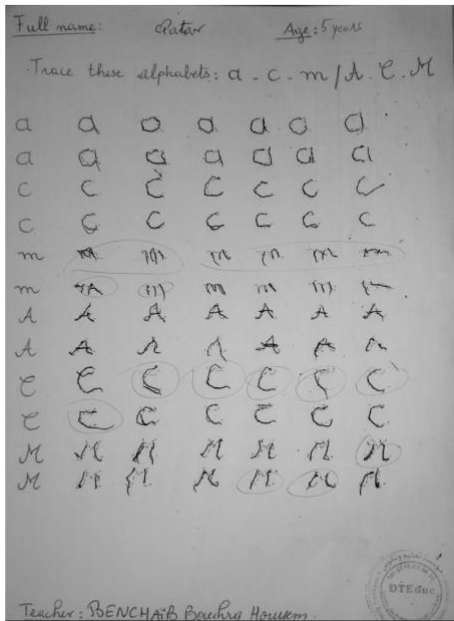 Full name: Qatar Age: 5 years
Trace these alphabets: a - c - m / A. C. M
a a a a a a a
a a a a a a a
c c c c c c c
c c c c c c c
m m m m m m m
m m m m m m m
A A A A A A A
A A A A A A A
C C C C C C C
C C C C C C C
M M M M M M M
M M M M M M M
DTEduc
Teacher: BENCHAÏB Bouchra Houyem.